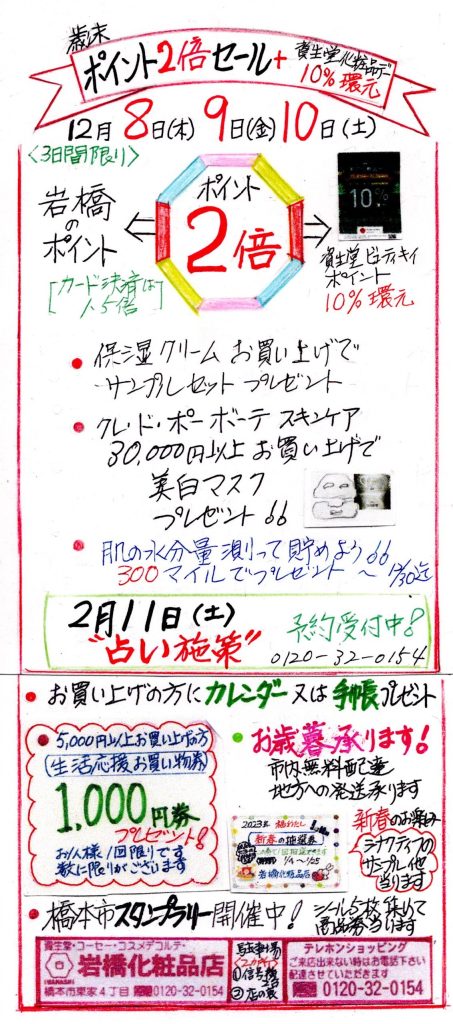 歳末
ポイント2倍セール+
資生堂化粧品デー
10%還元
12月8日(木)9日(金)10日(土)
<3日間限り>
岩橋
の
ポイント
[カード決済は
1.5倍]
ポイント
2倍
10%
資生堂ビューティキイ
ポイント
10%還元
・保湿クリームお買い上げで
サンプルセットプレゼント
・クレ・ド・ポーボーテ スキンケア
30,000円以上お買い上げで
美白マスク
プレゼント
・肌の水分量測って貯めよう
300マイルでプレゼント~12/30迄
2月11日(土)
"占い施策"
予約受付中!
0120-32-0154
・お買い上げの方にカレンダー又は手帳プレゼント
・5,000円以上お買い上げの方
(生活応援お買い物券)
1,000円券
プレゼント!
お1人様1回限りです
数に限りがございます
・お歳暮承ります!
市内無料配達
地方への発送承ります
2023年
新春の抽選券
1/4~1/25
岩橋化粧品店
新春のお楽み
シナクティフの
サンプル他
当ります
・橋本市スタンプラリー開催中!
シール5枚集めて
商品券当ります
資生堂・コーセー・コスメデコルテ・
IWAHASHI
岩橋化粧品店
橋本市東家4丁目 0120-32-0154
駐車場
①信号機
②店の裏
テレホンショッピング
ご来店出来ない時はお電話下さい
配達させていただきます
0120-32-0154